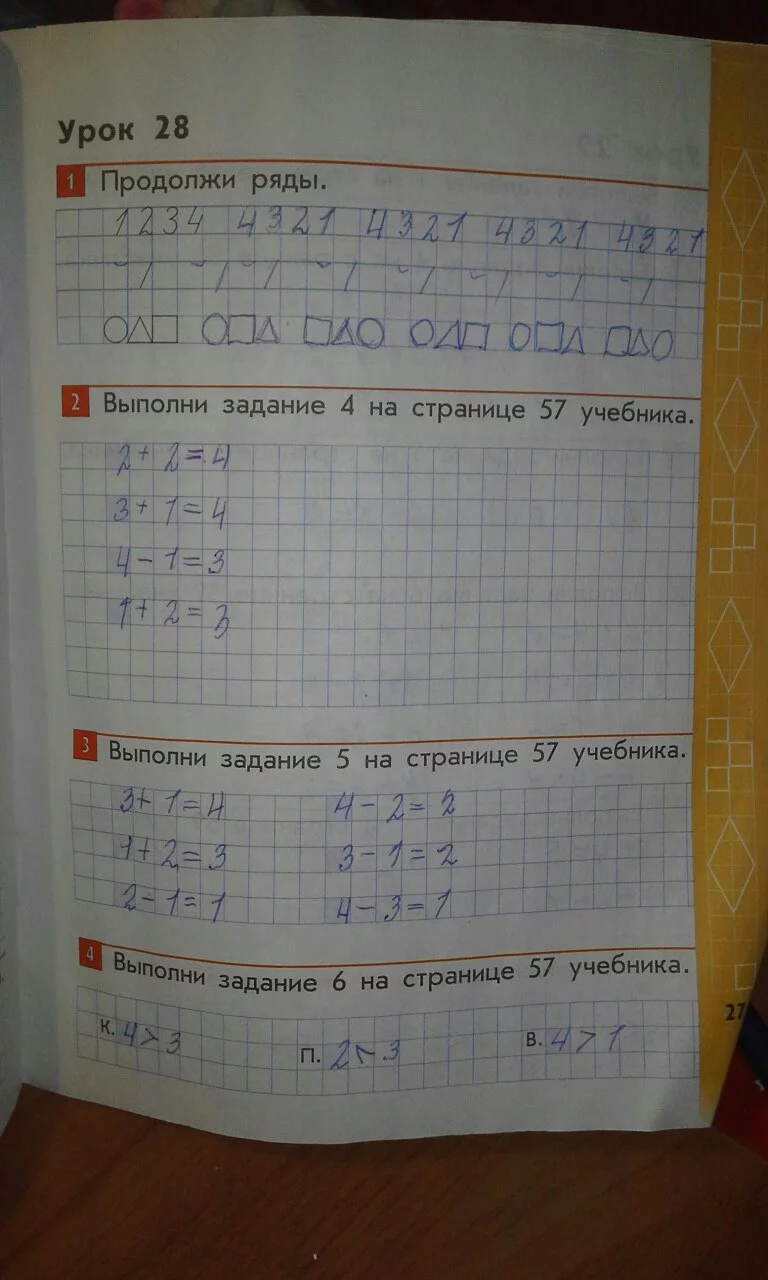 Урок 28
1 Продолжи ряды.
1234 4321 4321 4321 4321
2 Выполни задание 4 на странице 57 учебника.
2+2=4
3+1=4
4-1=3
1+2=3
3 Выполни задание 5 на странице 57 учебника.
3+1=4 4-2=2
1+2=3 3-1=2
2-1=1 4-3=1
4 Выполни задание 6 на странице 57 учебника.
К. 4>3 П. 2<3 В. 4>1
27